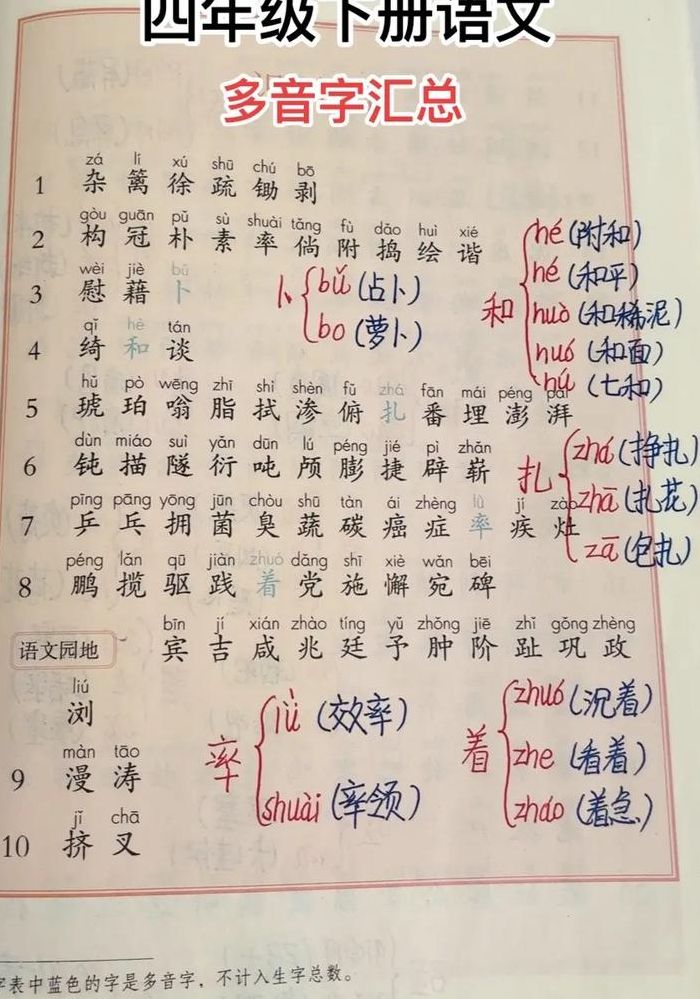 四年级下册语文
多音字汇总
zá lí xú shū chú bō
1 杂 篱 徐 疏 锄 剥
gòu guān pǔ sù shuài tǎng fù dǎo huì xié
2 构 冠 朴 素 率 倘 附 捣 绘 谐
wèi jiè bǔ
3 慰 藉 卜
qǐ hé tán
4 绮 和 谈
hǔ pò wēng zhī shì shèn fǔ zhá fān mái péng pài
5 琥 珀 嗡 脂 拭 渗 俯 扎 番 埋 澎 湃
dùn miáo suì yǎn dūn lú péng jié pì zhǎn
6 钝 描 隧 衍 吨 颅 膨 捷 辟 崭
pīng pāng yōng jūn chòu shū tàn ái zhèng lǜ jí zào
7 乒 乓 拥 菌 臭 蔬 碳 癌 症 率 疾 灶
péng lǎn qū jiàn zhuó dǎng shī xiè wǎn bēi
8 鹏 揽 驱 践 着 党 施 懈 宛 碑
bīn jí xián zhào tíng yǔ zhǒng jiē zhǐ gǒng zhèng
语文园地 宾 吉 咸 兆 廷 予 肿 阶 趾 巩 政
liú
浏
màn tāo
9 漫 涛
jǐ chā
10 挤 叉
卜
bǔ (占卜)
bo (萝卜)
和
hé (附和)
hé (和平)
huò (和稀泥)
huó (和面)
hú (七和)
扎
zhá (挣扎)
zhā (扎花)
zā (包扎)
率
lǜ (效率)
shuài (率领)
着
zhuó (沉着)
zhe (看着)
zháo (着急)
字表中蓝色的字是多音字，不计入生字总数。